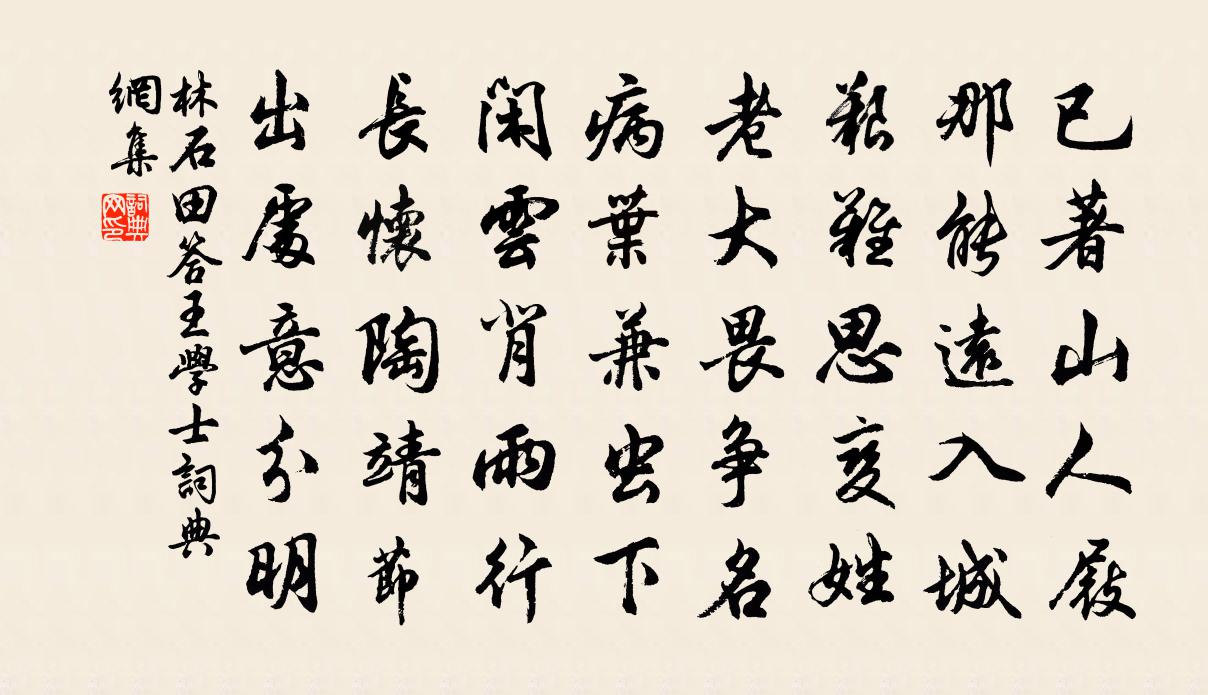 已著山人屐
那能遠入城
艱難思變姓
老大畏爭名
病葉兼虫下
閑雲背雨行
長懷陶靖節
出處意分明
林石田答王學士詞典
網集
詞典
网印